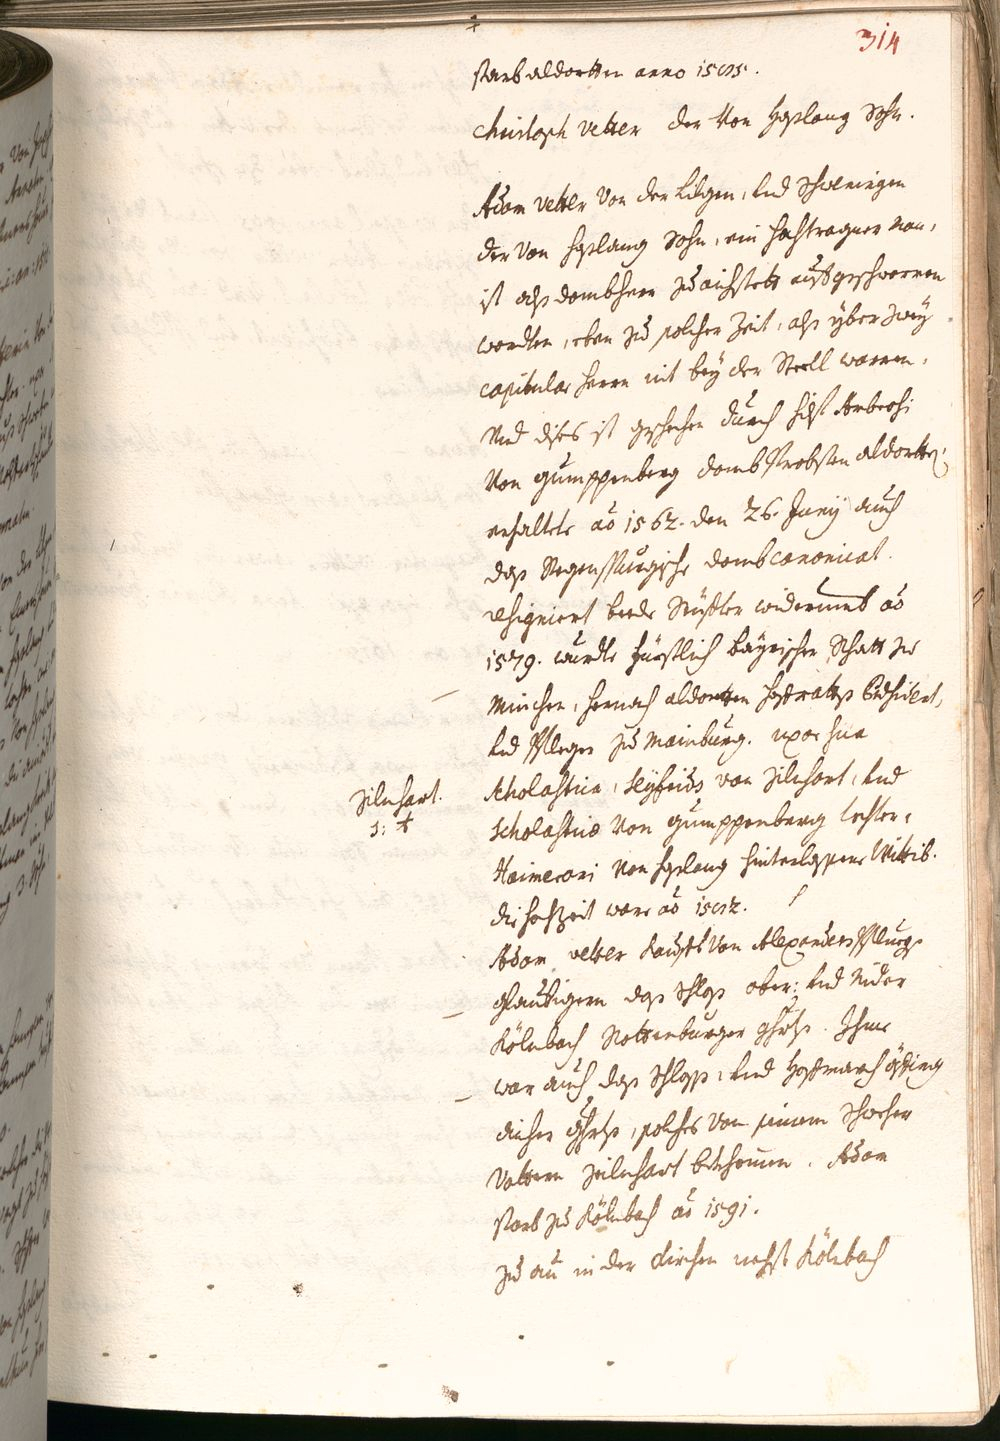 314
starb aldortten anno 1585.
Christoph Vetter der Von Haslang Sohn.
Adam Vetter Von der Lilgen, Und Schweningen
der Von Haslang Sohn, ein hochtragner Man,
ist alß dombherr zu aichstett aufgeschworren
wordten, eben zu solcher Zeit, alß yber zwey
capitular herrn nit bey der Stöll waren.
Und dises ist geschehen durch hilff Ambrosi
Von Gumppenberg dombprobsten aldortten,
erhaltete ao 1562. den 26. Juny auch
das Regenspurgische domb canonicat.
resigniert beede Stüffter widerumb ao
1579. wurdte fürstlich bayrischer Rhatt zu
München, hernach aldortten hofraths Präsident,
Und Pfleger zu Mainburg. uxor sua
Scholastica, Seyfrids von Zilnhart, Und
Zilnhart.
3: †
Scholastica Von Gumppenberg tochter,
Haimerani Von Haslang hinterlassene Wittib.
die hochzeit ware ao 1582.
Adam Vetter kaufft Von Alexanders Pfluegs
glaubigern das Schloß ober: Und Nider
Kölnbach Rottenburger ghrts. Ihme
war auch das Schloß, Und Hofmarch
ghrts, solches Von seinem Schweher
Vattern Zeilnhart bekhomen. Adam
starb zu Kölnbach ao 1591.
zu au in der Kirchen nechst Kölnbach